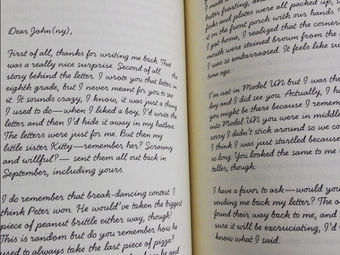 Dear John(ny),
First of all, thanks for writing me back. That
was a really nice surprise. Second of all the
story behind the letter. I wrote you that letter in
eighth grade, but I never meant for you to see
it. It sounds crazy, I know, it was just a thing
I used to do—when I liked a boy, I'd write the
letter and then I'd hide it away in my hatbox.
The letters were just for me. But then my
little sister Kitty—remember her? Scrawny
and willful?— sent them all out back in
September, including yours.
I do remember that break-dancing contest. I
think Peter won. He would've taken the biggest
piece of peanut brittle either way, though!
This is random but do you remember how he
used to always take the last piece of pizza?
butter frosting, and
forks and plates were all packed up, s
it on the front porch with our hands.
I got home, I realized that the corner
mouth were stained brown from the
I was so embarrassed. It feels like su
time ago.
I'm not in Model UN but I was the
day and I did see you. Actually, I ha
you might be there because I rememb
into Model UN you were in middl
sorry I didn't stick around so we co
I think I was just startled because
so long. You looked the same to me
taller, though.
I have a favor to ask—would yo
sending me back my letter? The o
found their way back to me, and
sure it will be excruciating, I'd
know what I said.